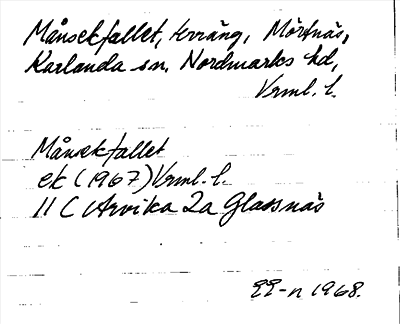 Månsekfallet, terräng, Mörtnäs,
Karlanda sn. Nordmarks hd,
Vrml. l.
Månsekfallet
ek (1967) Vrml. l.
11 C Arvika 2a Glassnäs
1968.